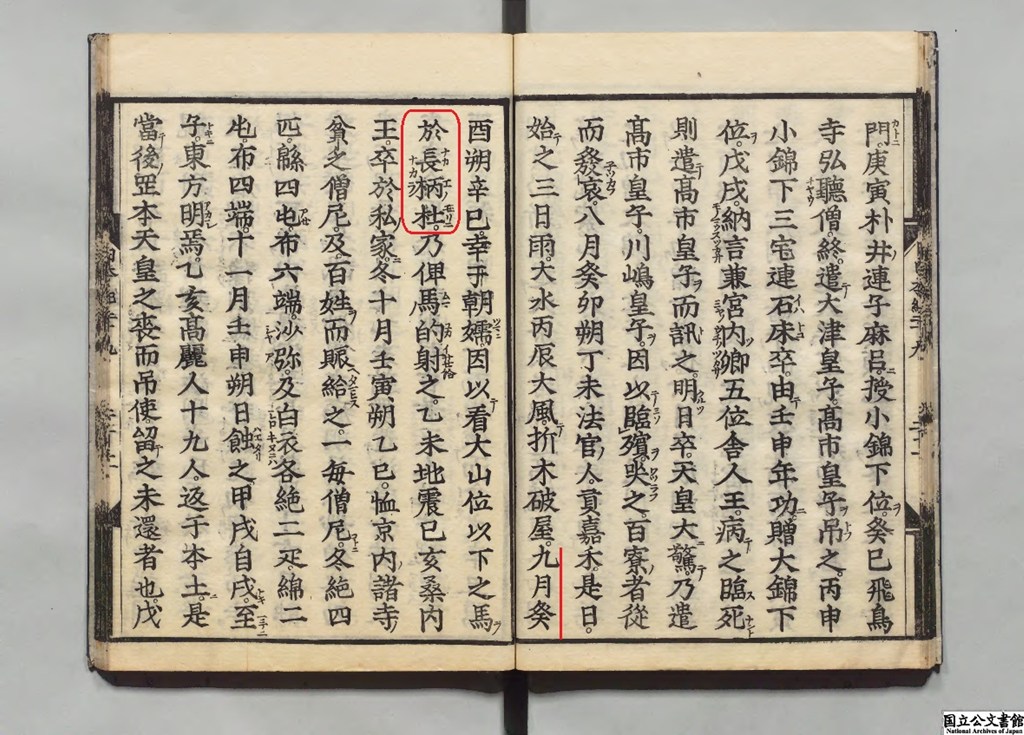 門。庚寅朴井連子麻呂授小錦下位。癸巳飛鳥
寺弘聽僧終。遣大津皇子。高市皇子吊之。丙申
小錦下三宅連石床卒。由壬申年功贈大錦下
位。戊戌。納言兼宮内卿五位舎人王。病之臨死
則遣高市皇子而訊之。明日卒。天皇大驚乃遣
高市皇子。川嶋皇子。因以臨殯哭之。百寮者從
而發哀。八月癸卯朔丁未法官人。貢嘉禾。是日。
始之三日雨。大水丙辰大風。折木破屋。九月癸
酉朔辛巳。幸于朝嬬因以看大山位以下之馬
於長柄杜。乃俾馬的射之。乙未地震己亥桑内
王。卒於私家。冬十月壬寅朔乙巳。恤京内諸寺
貧乏僧尼。及百姓而賑給之。一毎僧尼。冬絶四
匹。緜四屯。布六端。沙弥。及白衣各絶二疋。綿二
屯。布四端。十一月壬申朔日蝕之甲戌自戌。至
子。東方明焉。乙亥高麗人十九人。返于本土。是
當後罡本天皇之喪而吊使。留之未還者也。戊
国立公文書館
National Archives of Japan